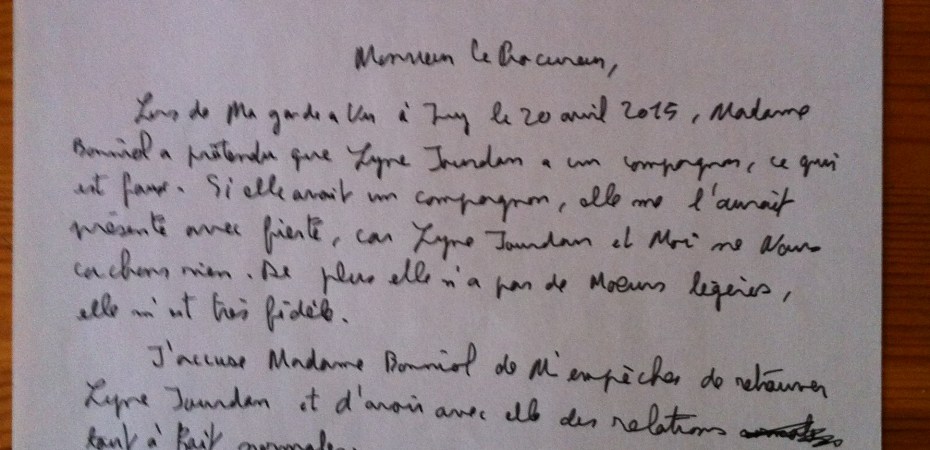 Monsieur le Procureur,
Lors de Ma garde a Vu à Juy le 20 avril 2015, Madame
Bonniol a prétendu que Lyne Jourdan a un compagnon, ce qui
est faux. Si elle avait un compagnon, elle me l'aurait
présenté avec fierté, car Lyne Jourdan et Moi ne Nous
cachons rien. De plus elle n'a pas de Moeurs legères,
elle m'est très fidèle.
J'accuse Madame Bonniol de M'empêcher de retrouver
Lyne Jourdan et d'avoir avec elle des relations
tout à fait normales.